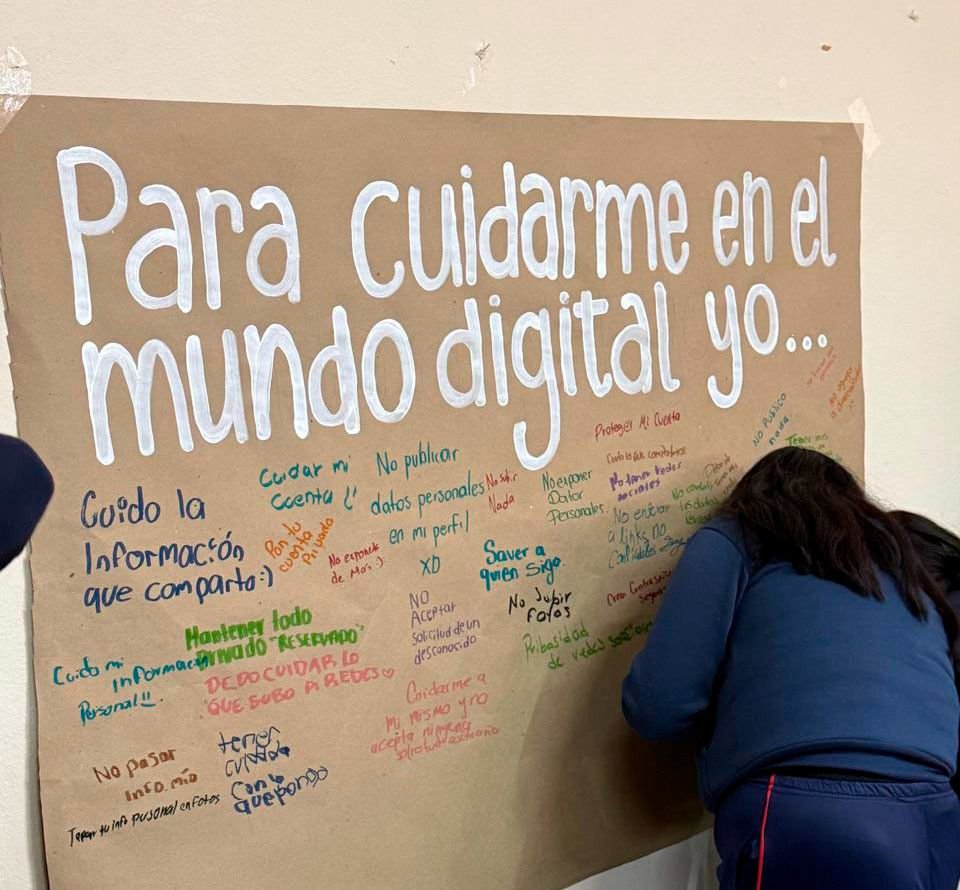 Para cuidarme en el
mundo digital yo...
Cuido la
Información
que comparto:)
Cuidar mi
cuenta
No publicar
datos personales
en mi perfil
XD
No subir
Nada
No exponer
Datos
Personales
Proteger Mi Cuenta
No tener redes
sociales
No entrar
a links no
confiables
No Publico
nada
Pon tu
cuenta
Privada
No exponerte
de Mas :)
Saver a
quien sigo
No subir
Fotos
NO
Aceptar
solicitud de un
desconocido
Mantener todo
Privado "RESERVADO"
DEDO CUIDAR LO
QUE SUBO A REDES♡
Cuido mi
informacion
Personal!!
Pribasidad
de redes
Cuidarme a
Mi mismo y no
acepta ninguna
No pasar
info. mia
tener
cuidado
Con lo
que pongo
Tapar tu info personal en Fotos